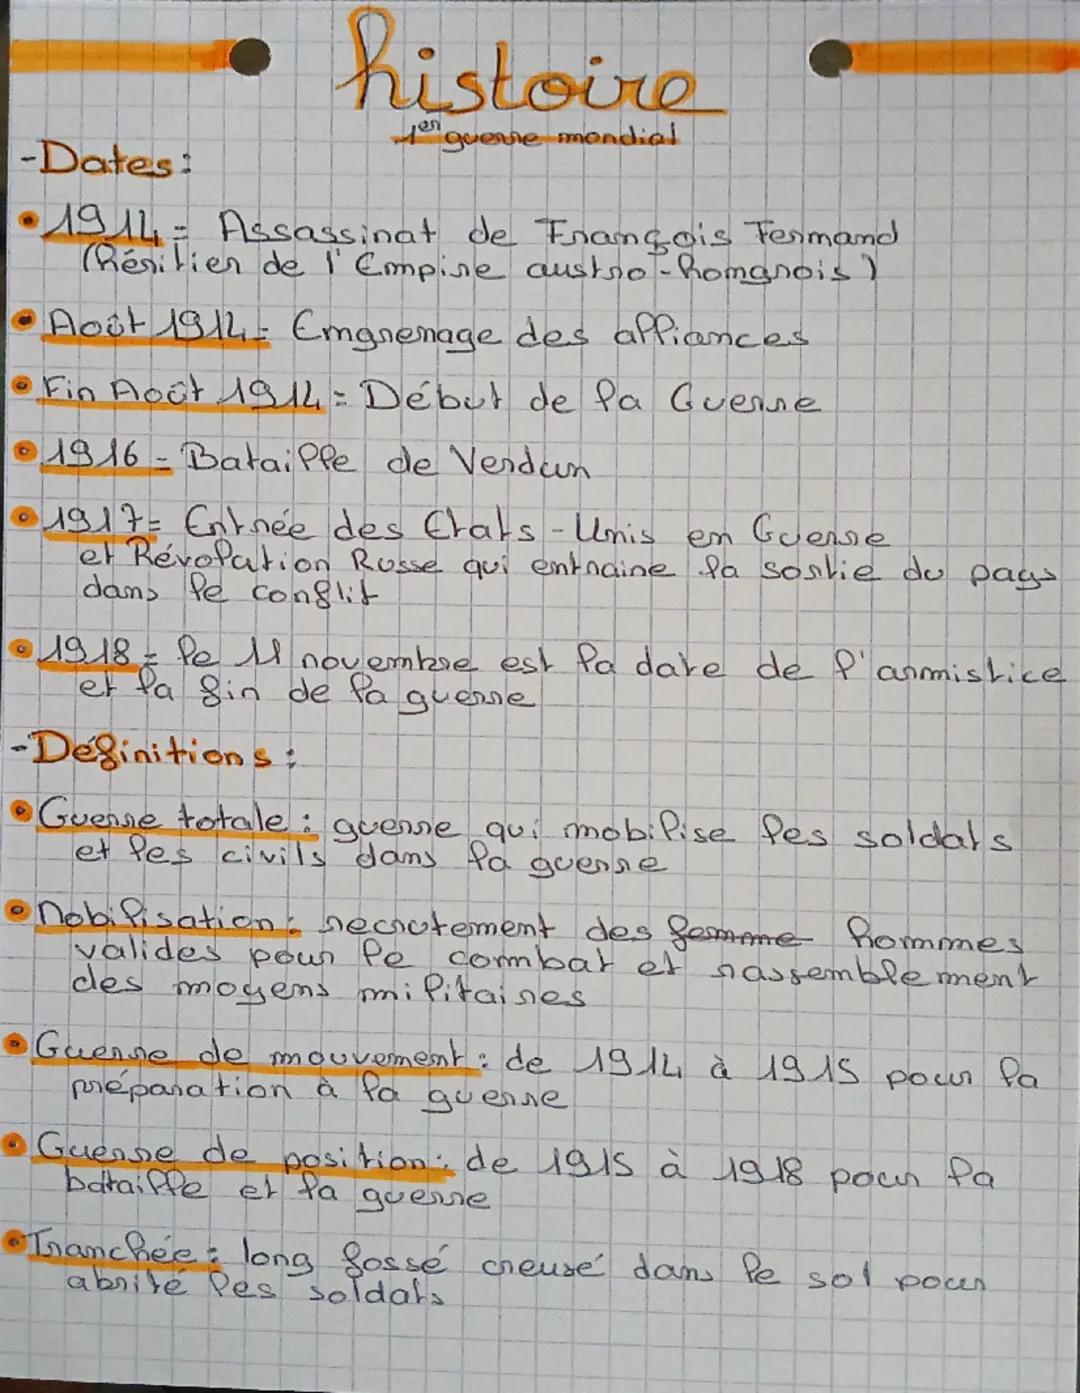 histoire
1er guerre mondial
-Dates:
• 1914 = Assassinat de François Fermand
(héritier de l'Empire austro-homgrois)
• Août 1914 = Emgrenage des alliances
• Fin Août 1914 = Début de la Guerre
• 1916 - Bataille de Verdun
• 1917 = Entrée des Etats-Unis en Guerre
et Révolution Russe qui entraine la sortie du pays
dans le conflit
• 1918 = le 11 novembre est la date de l'armistice
et la fin de la guerre
-Définitions:
• Guerre totale : guerre qui mobilise les soldats
et les civils dans la guerre
• Mobilisation : recrutement des femme hommes
valides pour le combat et rassemblement
des moyens militaires
• Guerre de mouvement : de 1914 à 1915 pour la
préparation à la guerre
• Guerre de position : de 1915 à 1918 pour la
bataille et la guerre
• Tranchée : long fossé creusé dans le sol pour
abrité les soldats